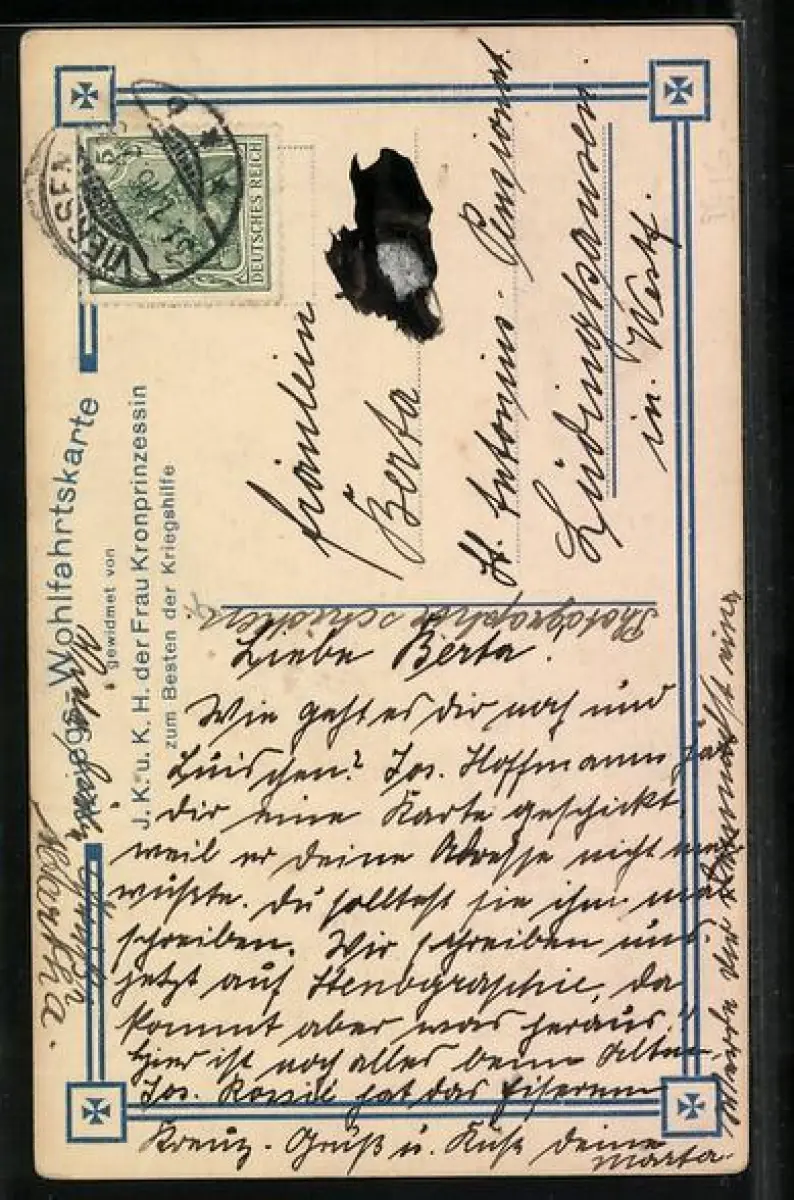 Kriegs-Wohlfahrtskarte
gewidmet von
J. K. u. K. H. der Frau Kronprinzessin
zum Besten der Kriegshilfe
5
DEUTSCHES REICH
VIERSEN
Fräulein
Berta
St. Antonius-Pensionat.
Lüdinghausen
in. Westf.
Liebe Berta!
Wie geht es dir noch und
Luischen? Jos. Hoffmann hat
dir eine Karte geschickt,
weil er deine Adresse nicht mehr
wußte. Du solltest sie ihm mal
schreiben. Wir schreiben uns
jetzt auf Stenographie, da
kommt aber was heraus!!
Hier ist noch alles beim Alten.
Jos. hat das Eiserne
Kreuz. Gruß u. Kuß deine
Marta.
Werde dir demnächst eine
Photographie schicken.
Grüße
Martha.